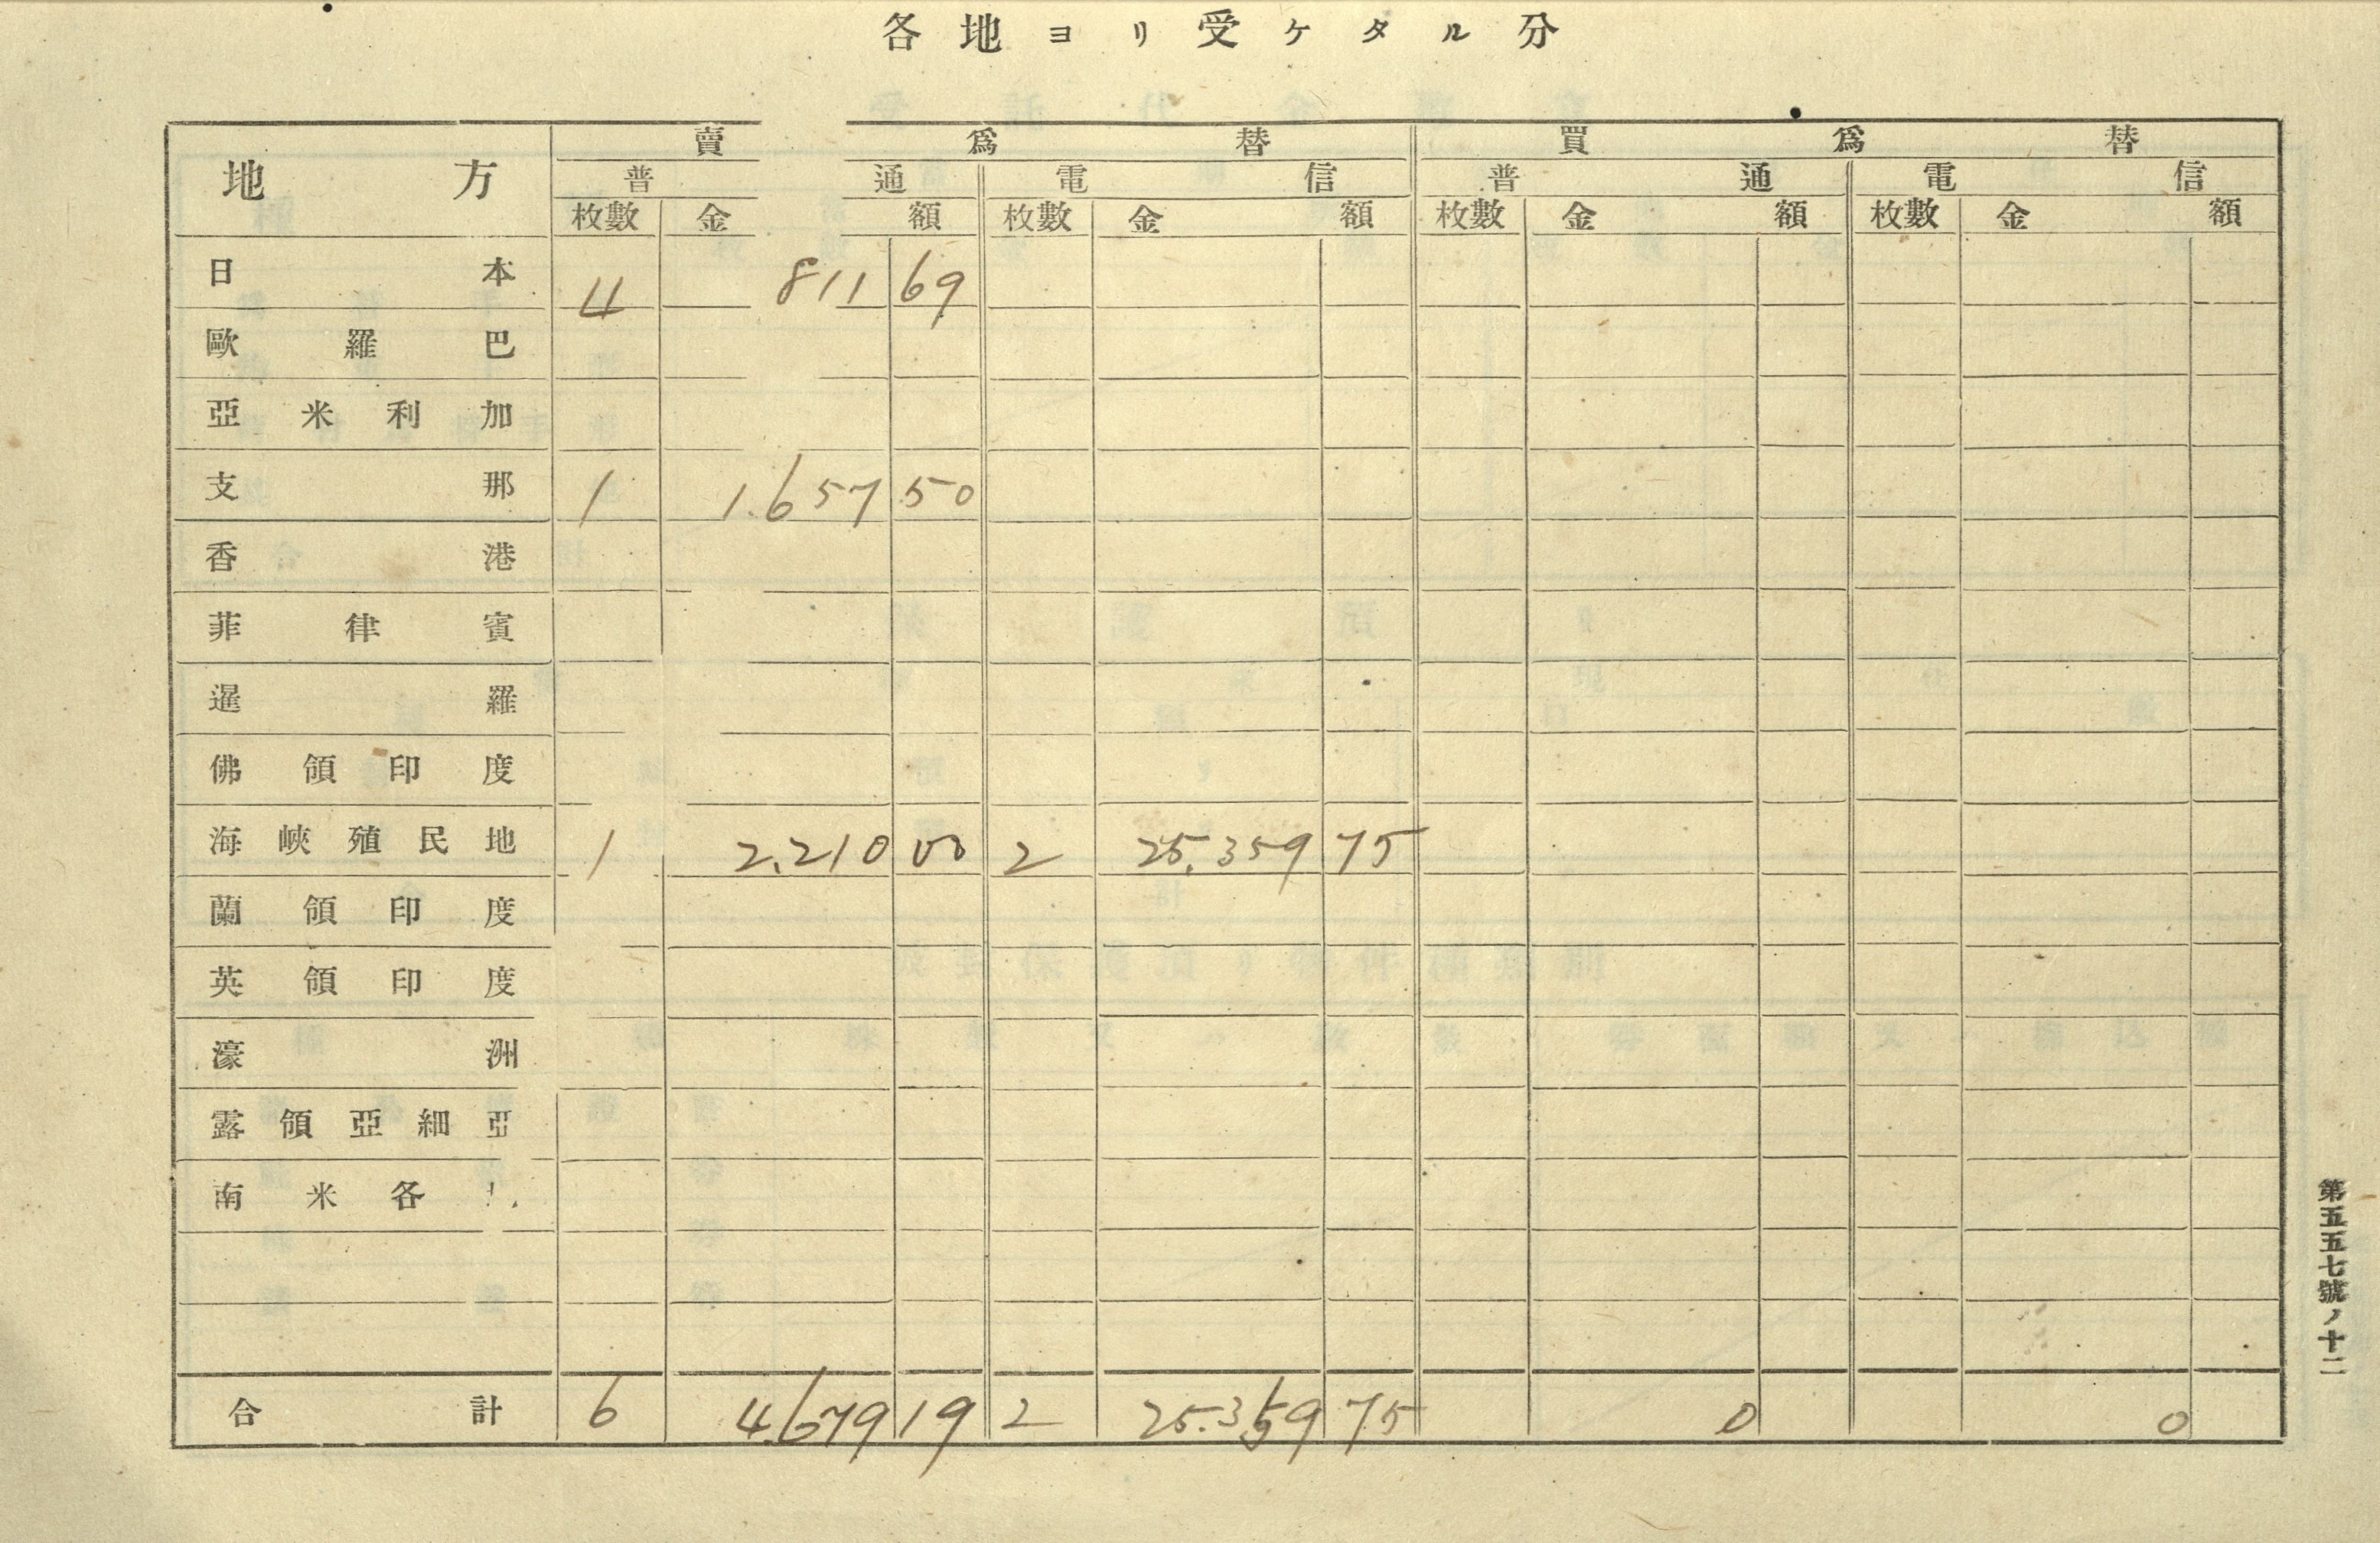 各地ヨリ受ケタル分
地方 賣爲替 買爲替
普通 電信 普通 電信
枚數 金額 枚數 金額 枚數 金額 枚數 金額
日本 4 811 69
歐羅巴
亞米利加
支那 1 1.657 50
香港
菲律賓
暹羅
佛領印度
海峽殖民地 1 2.210 00 2 25.359 75
蘭領印度
英領印度
濠洲
露領亞細亞
南米各
合計 6 4.679 19 2 25.359 75 0 0
第五五七號ノ十二